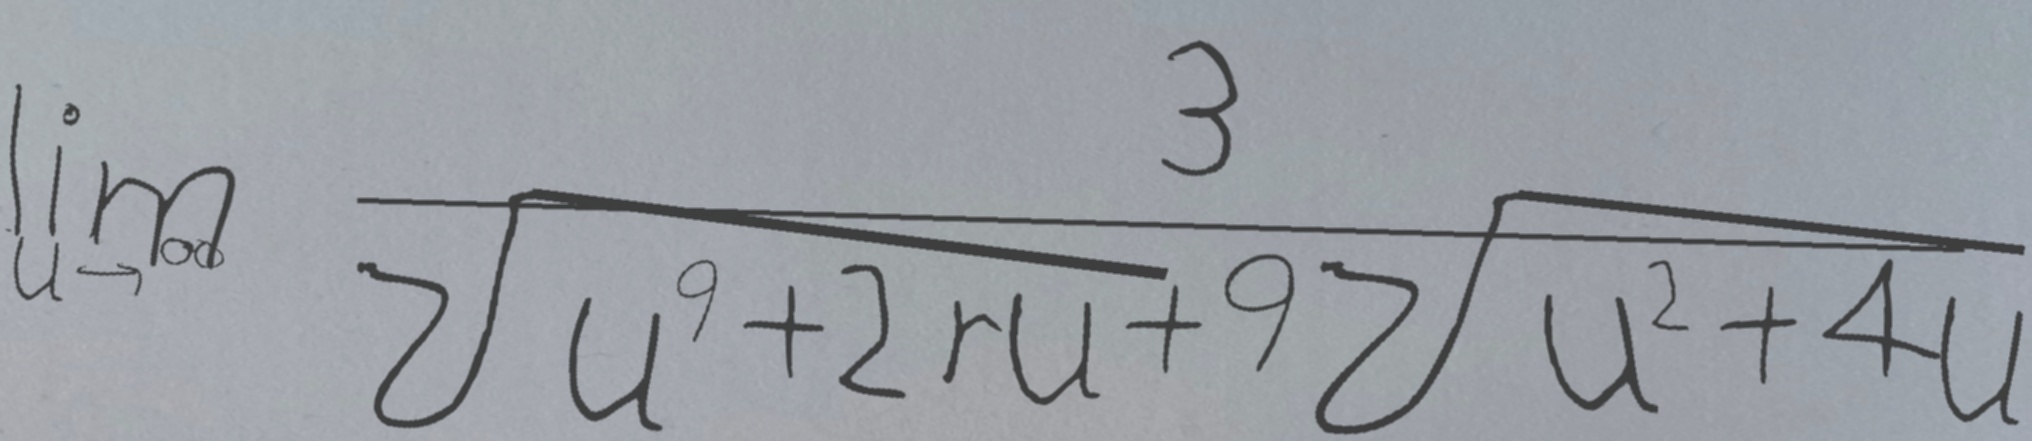 \lim_{u \to \infty} \frac{3}{\sqrt{u^9 + 2ru} + 9\sqrt{u^2 + 4u}}